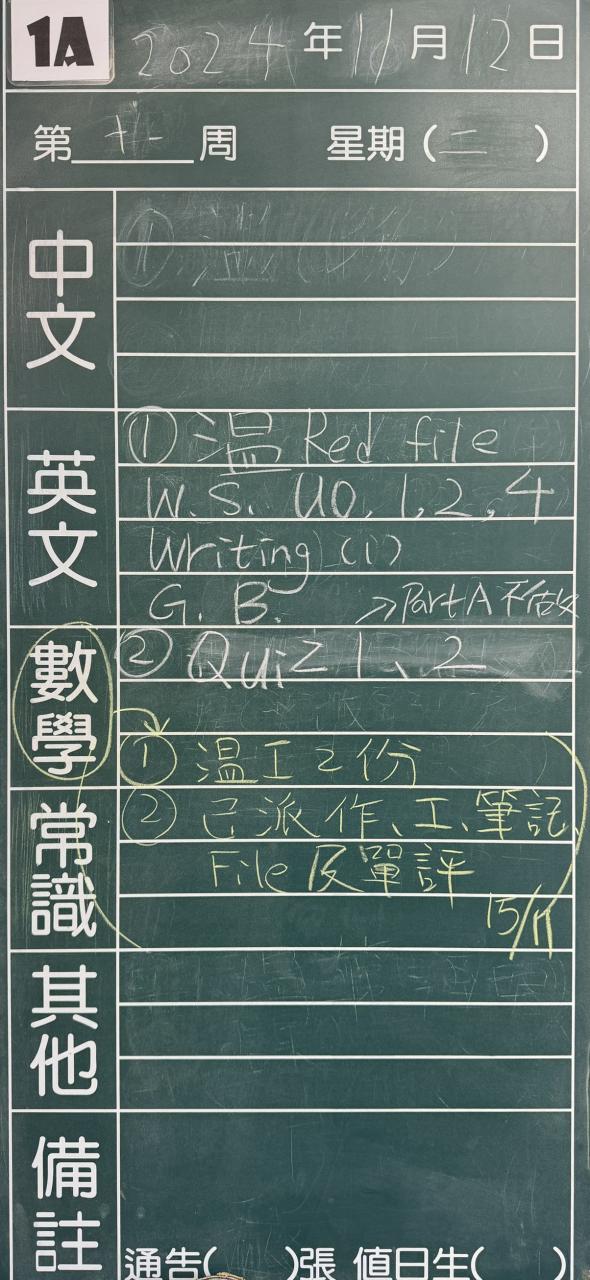 1A 2024年11月12日
第十一周 星期(二)
中文
英文
① 温 Red file
W.S. U0, 1, 2, 4
Writing (1)
G.B. →Part A 不做
② Quiz 1、2
數學
① 温工2份
② 已派作、工、筆記
File 及單評
15/11
常識
其他
備註
通告( )張 值日生( )